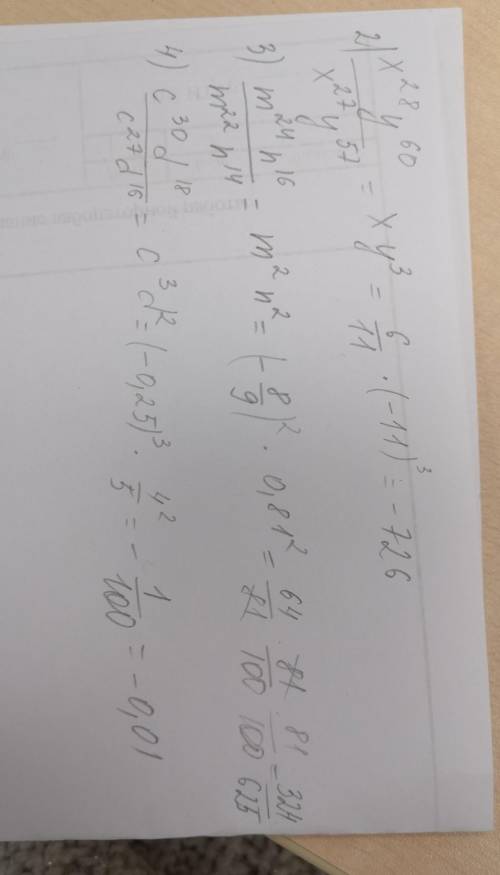 2) x^28 y^60 / x^27 y^57 = x y^3 = 6/11 · (-11)^3 = -726
3) m^24 n^16 / m^22 n^14 = m^2 n^2 = (-8/9)^2 · 0,81^2 = 64/81 · 81/100 · 81/100 = 324/625
4) c^30 d^18 / c^27 d^16 = c^3 d^2 = (-0,25)^3 · 4^2/5 = -1/100 = -0,01